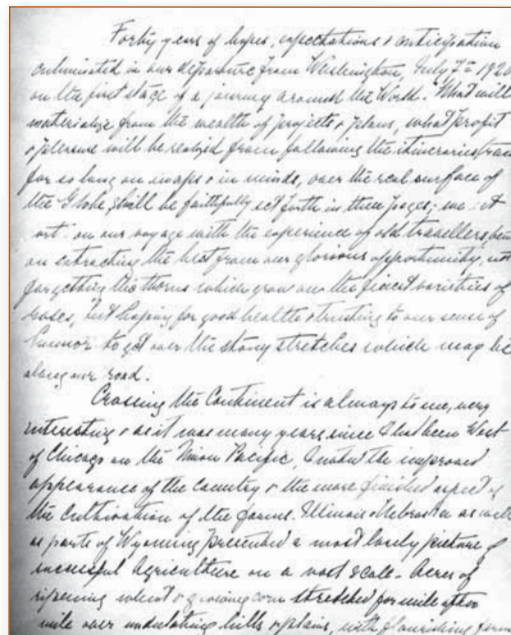 Forty years of hopes, expectations & anticipation
culminated in our departure from Washington, July 7th 1920
on the first stage of a journey around the World. What will
materialize from the wealth of projects & plans, what profit
& pleasure will be realized from following the itineraries trac
for so long on maps & in minds, over the real surface of
the Globe, shall be faithfully set forth in these pages; we set
out on our voyage with the experience of old travellers, ben
on extracting the best from our glorious opportunity, not
forgetting the thorns which grow on the finest varieties of
roses, but hoping for good health & trusting to our sense of
humor to get over the stony stretches which may be
along our road.
Crossing the Continent is always to me, very
interesting & as it was many years since I had been West
of Chicago on the Union Pacific, I noted the improved
appearance of the country & the more finished aspect of
the cultivation of the farms. Illinois & Nebraska as well
as parts of Wyoming presented a most lovely picture of
successful agriculture on a vast scale - Acres of
ripening wheat & growing corn stretched for mile after
mile over undulating hills & plains, with flourishing farm